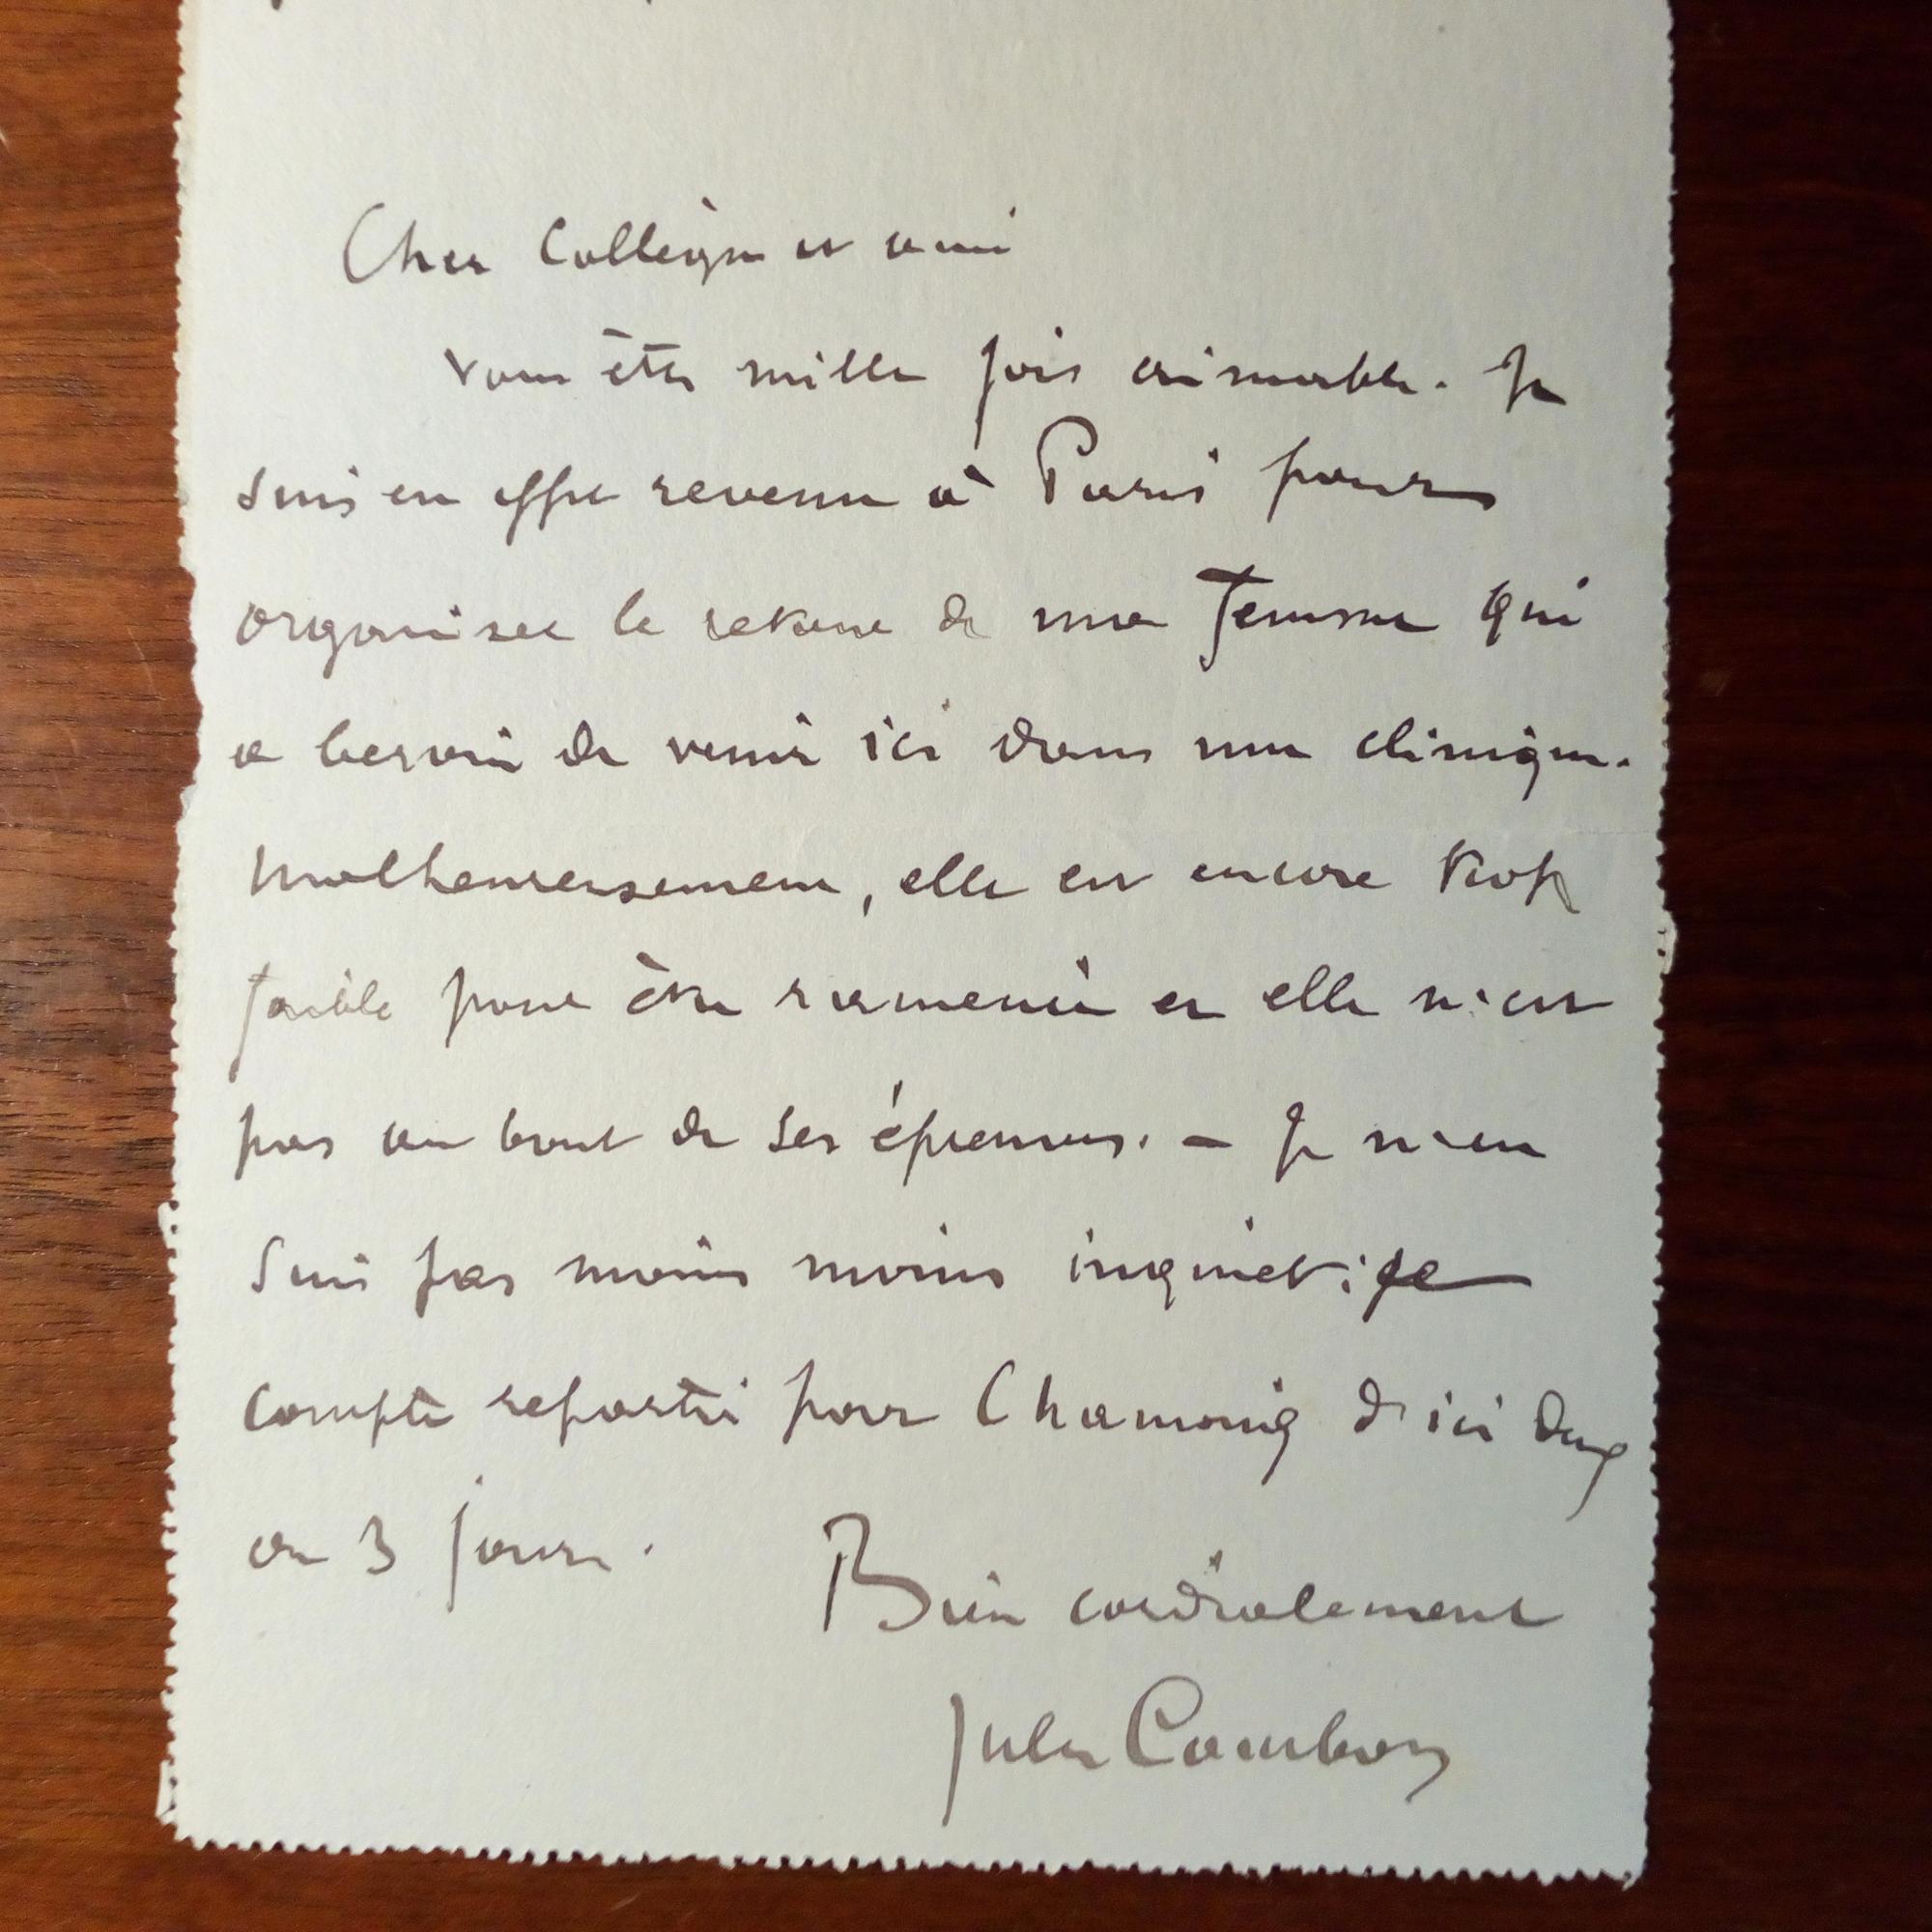 Cher Collègue et ami
Vous êtes mille fois aimable. Je
suis en effet revenu à Paris pour
organiser le retour de ma femme qui
a besoin de venir ici dans une clinique.
Malheureusement, elle est encore trop
faible pour être ramenée et elle n'est
pas au bout de ses épreuves. - Je n'en
suis pas moins moins inquiet; je
compte repartir pour Chamonix d'ici deux
ou 3 jours.
Bien cordialement
Jules Cambon